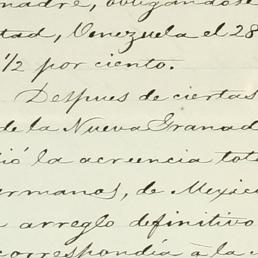 madre, obligándose
tad, Venezuela el 28
1/2 por ciento.
Despues de ciertas
de la Nueva Granad
ió la acreencia tot
ermanos, de Mexico
arreglo definitivo
correspondía á la